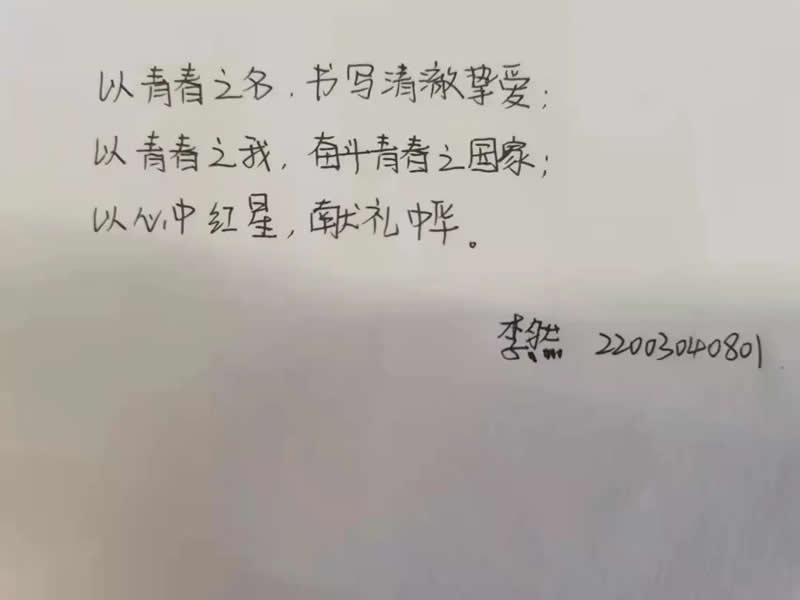 以青春之名，书写清澈挚爱；
以青春之我，奋斗青春之国家；
以心中红星，献礼中华。
李然 22003040801